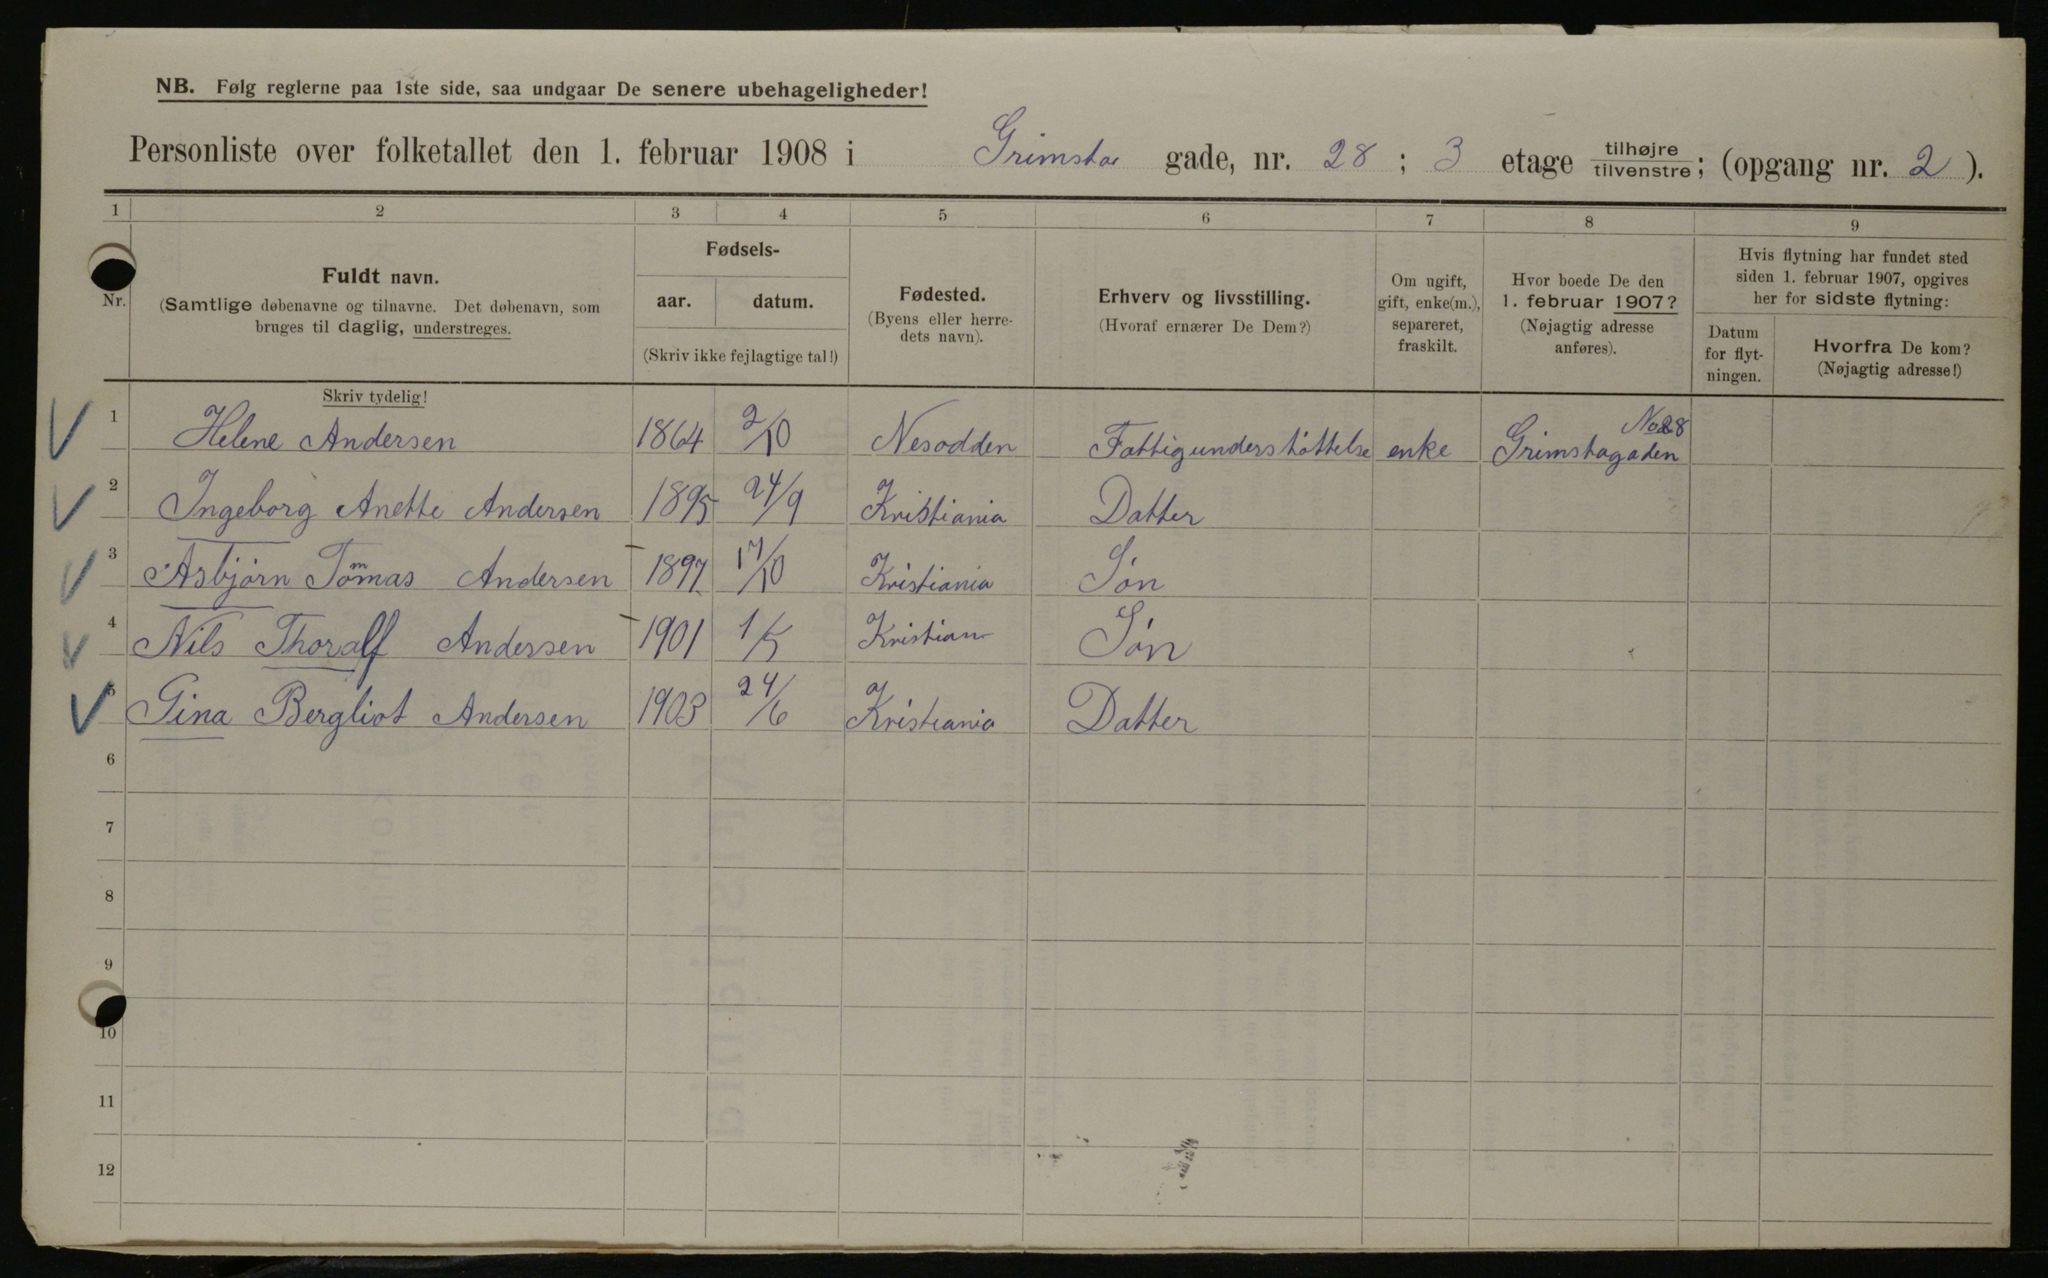 NB. Følg reglerne paa 1ste side, saa undgaar De senere ubehageligheder!
Personliste over folketallet den 1. februar 1908 i Grimsta gade, nr. 28 ; 3 etage tilhøjre/tilvenstre; (opgang nr. 2 ).
1 2 3 4 5 6 7 8 9
Nr.
Fuldt navn.
(Samtlige døbenavne og tilnavne. Det døbenavn, som
bruges til daglig, understreges.
Skriv tydelig!
Fødsels-
aar. datum.
(Skriv ikke fejlagtige tal!)
Fødested.
(Byens eller herre-
dets navn).
Erhverv og livsstilling.
(Hvoraf ernærer De Dem?)
Om ugift,
gift, enke(m.),
separeret,
fraskilt.
Hvor boede De den
1. februar 1907?
(Nøjagtig adresse
anføres).
Hvis flytning har fundet sted
siden 1. februar 1907, opgives
her for sidste flytning:
Datum
for flyt-
ningen.
Hvorfra De kom?
(Nøjagtig adresse!)
1 Helene Andersen 1864 2/10 Nesodden Fattigunderstøttelse enke Grimstagaden No 28
2 Ingeborg Anette Andersen 1895 24/9 Kristiania Datter
3 Asbjørn Tomas Andersen 1897 17/10 Kristiania Søn
4 Nils Thoralf Andersen 1901 1/5 Kristian Søn
5 Gina Bergliot Andersen 1903 24/6 Kristiania Datter
6
7
8
9
10
11
12